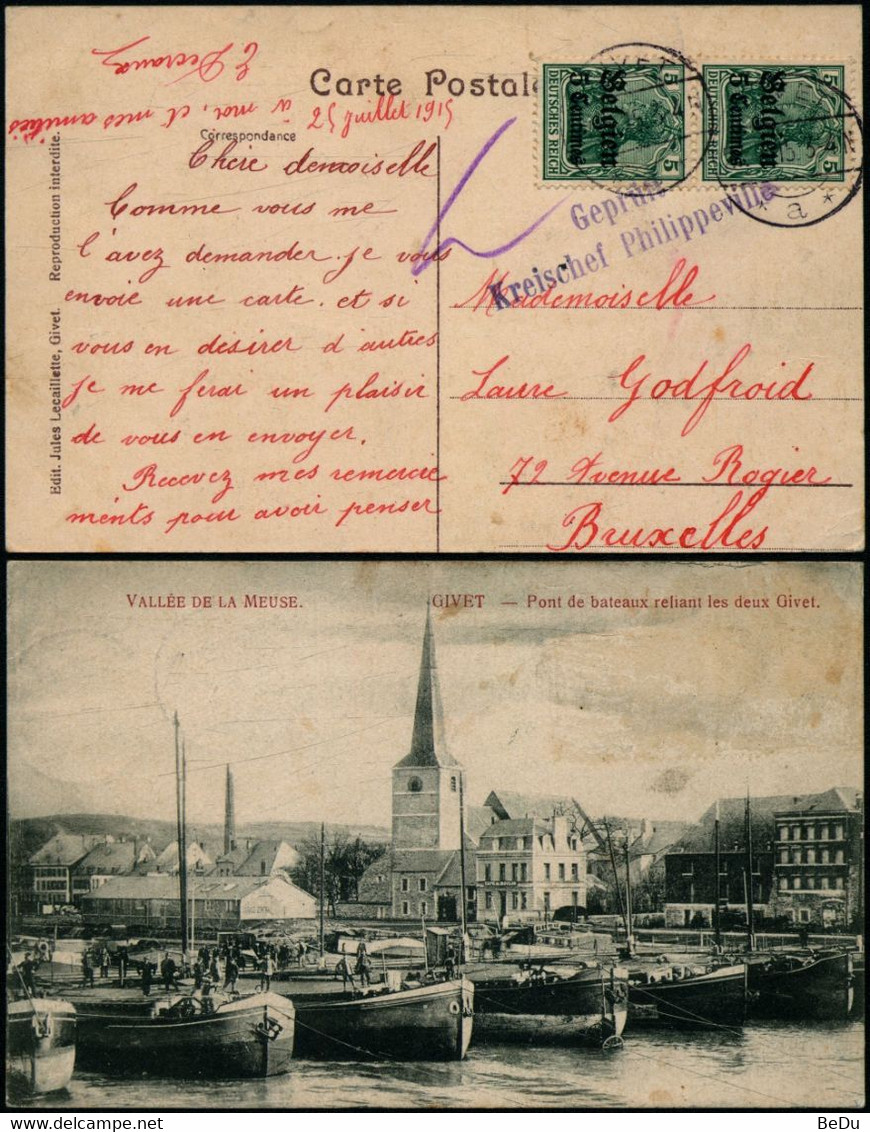 Carte Postale
Correspondance
25 juillet 1915
Chère demoiselle
Comme vous me
l'avez demander je vous
envoie une carte. et si
vous en désirer d'autres
je me ferai un plaisir
de vous en envoyer.
Recevez mes remercie
ments pour avoir penser
à moi, et mes amitiés
Edit. Jules Lecaillette, Givet. Reproduction interdite.
DEUTSCHES REICH
5
5
Belgien
5 Centimes
DEUTSCHES REICH
5
5
Belgien
5 Centimes
* a *
Geprüft
Kreischef Philippeville
Mademoiselle
Laure Godfroid
72 Avenue Rogier
Bruxelles
VALLÉE DE LA MEUSE. GIVET — Pont de bateaux reliant les deux Givet.
BeDu